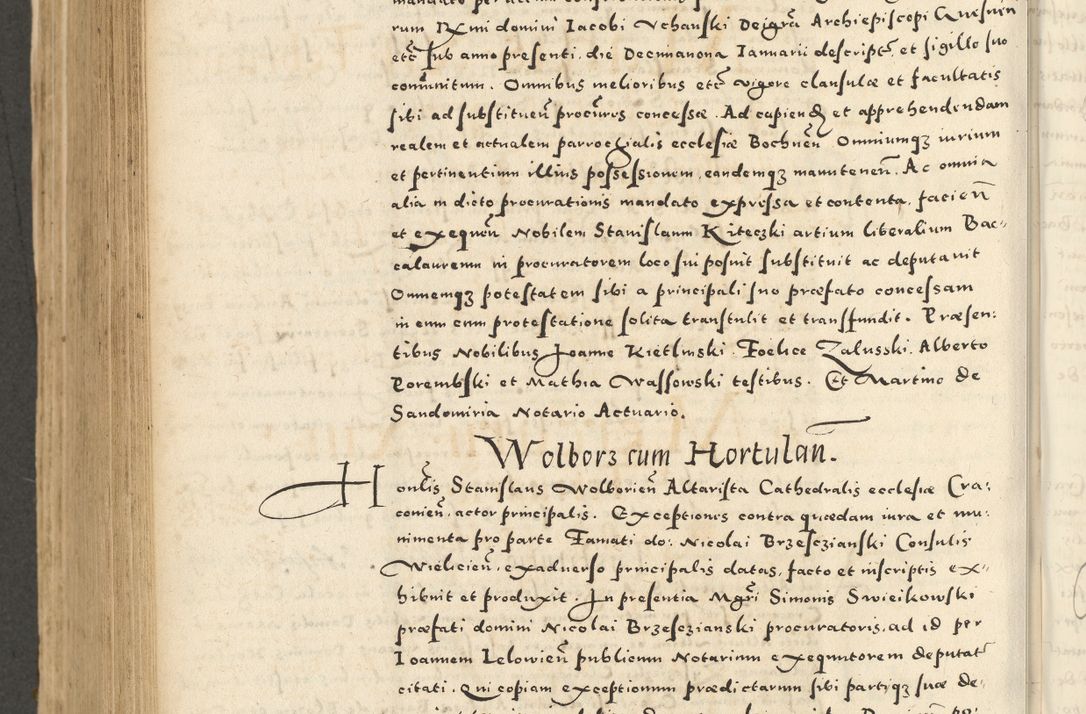 rum Rxmi domini Iacobi Vchanski Dei grā Archiepiscopi Gnesnen
etc̄ sub anno presenti die Decimanona Ianuarii descript̄ et sigillo suo
com̄unitum. Omnibus melioribus etc̄ vigore clausulæ et facultatis
sibi ad substituen̄ procur̄es concessæ. Ad capiend̄ et apprehendendam
realem et actualem parrochialis ecclesiæ Bochnen̄ Omniumqꝫ iurium
et pertinentium illius possessionem, eandemqꝫ manutenen̄. Ac omnia
alia in dicto procurationis mandato expressa et contenta, facien̄
et exequen̄ Nobilem Stanislaum Kiteczki artium liberalium Bac-
calaureum in procuratorem loco sui posuit substituit ac deputauit
Omnemqꝫ potestatem sibi a principali suo præfato concessam
in eum cum protestatione solita transtulit et transfundit. Præsen:
tibus Nobilibus Joanne Kietlinski. Foelice Zalusski. Alberto
Porembski et Mathia Wassowski testibus. Et Martino de
Sandomiria Notario Actuario.
Wolborz cum Hortulan̄.
Honl̄is Stanislaus Wolborien̄ Altarista Cathedralis ecclesiæ Cra:
couien̄, actor principalis. Exceptiones contra quædam iura et mu:
nimenta pro parte Famati do: Nicolai Brzesczianski Consulis
Wielicien̄, ex aduerso principalis datas, facto et inscriptis ex-
hibuit et produxit. In presentia Mgr̄i Simonis Swieikowski
præfati domini Nicolai Brzesczianski procuratoris, ad id per
Ioannem Lelowien̄ publicum Notarium exequutorem deputat̄
citati. Qui copiam exceptionum prædictarum sibi partiqꝫ suæ de-